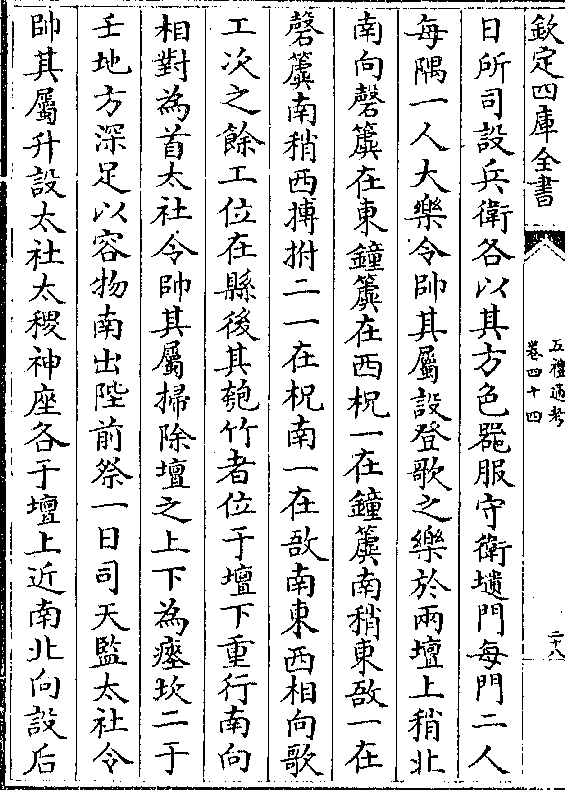 欽定四庫全書
五禮通考
卷四十四
二十八
日所司設兵衛各以其方色器服守衛壝門每門二人
每隅一人大樂令帥其屬設登歌之樂於兩壇上稍北
南向磬簴在東鐘簴在西柷一在鐘簴南稍東敔一在
磬簴南稍西搏拊二一在柷南一在敔南東西相向歌
工次之餘工位在縣後其匏竹者位于壇下重行南向
相對為首太社令帥其屬掃除壇之上下為瘞坎二于
壬地方深足以容物南出陛前祭一日司天監太社令
帥其屬升設太社太稷神座各于壇上近南北向設后